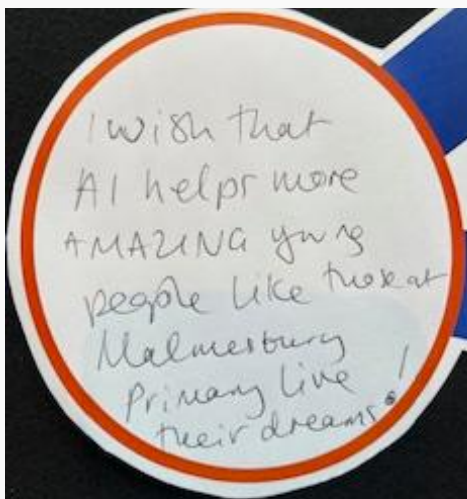 I wish that
AI helps more
AMAZING young
people like those at
Malmesbury
Primary live
their dreams!